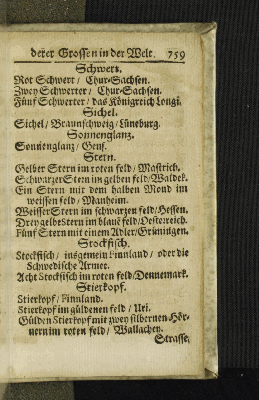 derer Grossen in der Welt. 759
Schwert.
Rot Schwert / Chur-Sachsen.
Zwey Schwerter / Chur-Sachsen.
Fünf Schwerter / das Königreich Longi.
Sichel.
Sichel / Braunschweig / Lüneburg.
Sonnenglanz.
Sonnenglanz / Genf.
Stern.
Gelber Stern im roten feld / Mastrich.
Schwarzer Stern im gelben feld / Waldek.
Ein Stern mit dem halben Mond im
weissen feld / Manheim.
Weisser Stern im schwarzen feld / Hessen.
Drey gelbe Stern im blaue feld / Oesterreich.
Fünf Stern mit einem Adler / Gröningen.
Stockfisch.
Stockfisch / insgemein Finnland / oder die
Schwedische Armee.
Acht Stockfisch im roten feld / Dennemark.
Stierkopf.
Stierkopf / Finnland.
Stierkopf im güldenen feld / Uri.
Gülden Stierkopf mit zwey silbernen Hör-
nern im roten feld / Wallachey.
Strasse,